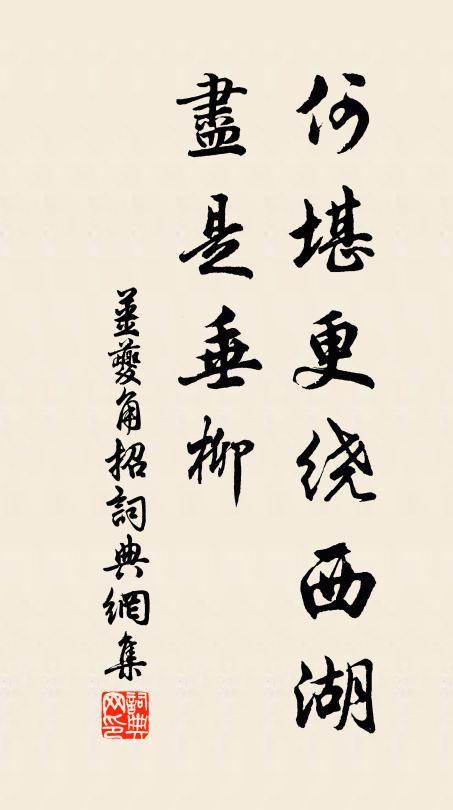 何堪更绕西湖
盡是垂柳
姜夔角招詞典網集
詞典网印